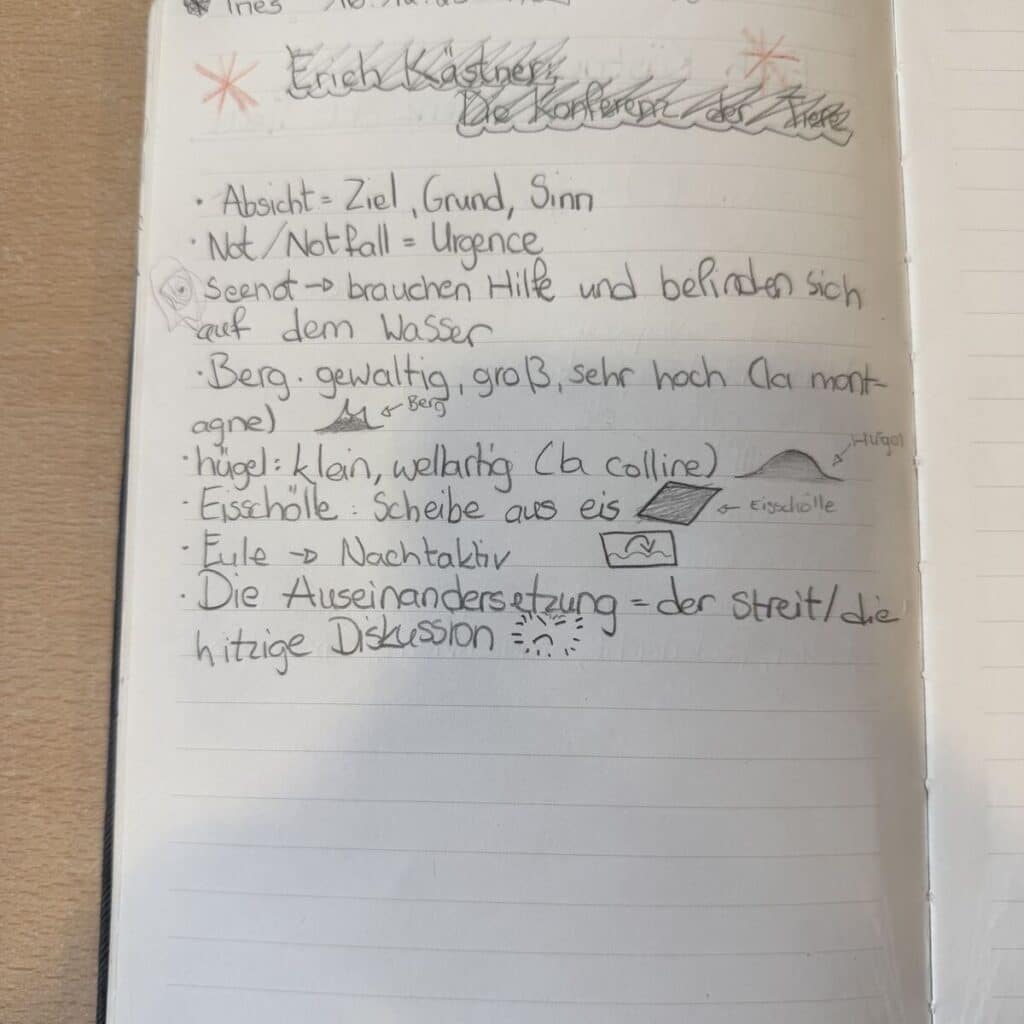 Ines
Erich Kästner:
Die Konferenz der Tiere
· Absicht = Ziel, Grund, Sinn
· Not/Notfall = Urgence
Seenot → brauchen Hilfe und befinden sich
auf dem Wasser
· Berg. gewaltig, groß, sehr hoch (la mont-
agne) ← Berg
· hügel: klein, wellartig (la colline) Hügel
· Eisschölle: Scheibe aus eis ← Eisschölle
· Eule → Nachtaktiv
· Die Auseinandersetzung = der Streit/die
hitzige Diskussion